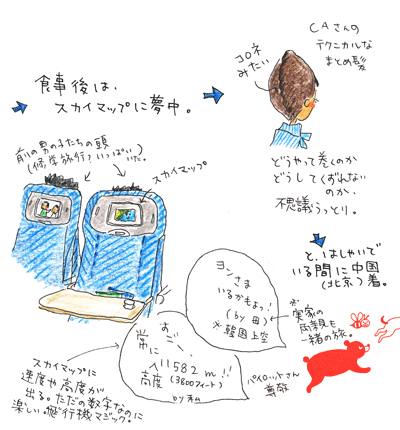 食事後は、
スカイマップに夢中。
CAさんの
テクニカルな
まとめ髪
コロネ
みたい
どうやって巻くのか
どうしてくずれない
のか、
不思議うっとり。
前の男の子たちの頭
(修学旅行?いっぱい
いた。)
スカイマップ
と、はしゃいで
いる間に中国
(北京)着。
ヨンさま
いるかもよっ!
(by 母)
※韓国上空
※
実家の
両親も
一緒の旅。
すご、
常に
11582m!!
高度(3800フィート)
by 私
パイロットさん
尊敬
スカイマップに
速度や高度が
出る。ただの数字なのに
楽しい。飛行機マジック。